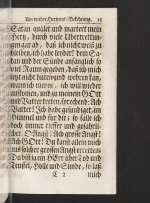 Von wahrer Hertzens Bekehrung. 35
Satan quälet und martert mein
Hertz, durch viele Ubertrettun-
gen gar ab, daß ich nicht weiß zu
bleiben, ich habe leyder! dem Sa-
tan und der Sünde anfänglich so
viel Raum gegeben, daß ich mich
jetzt nicht
darum ich will wieder
umkehren, und zu meinem GOtt
und Vatter tretten, sprechend: Ach
Vatter! Ich habe gesündiget im
Himmel und für dir; ich falle je
noch immer tieffer und gefähr-
licher. O Angst! Ach grosse Angst!
Ach GOtt! Du kanst allein mich
aus solcher grossen Angst erretten
Du bist ja ein HErr über Tod und
Teuffel, Hölle und Sünde, so laß
C 2 mich